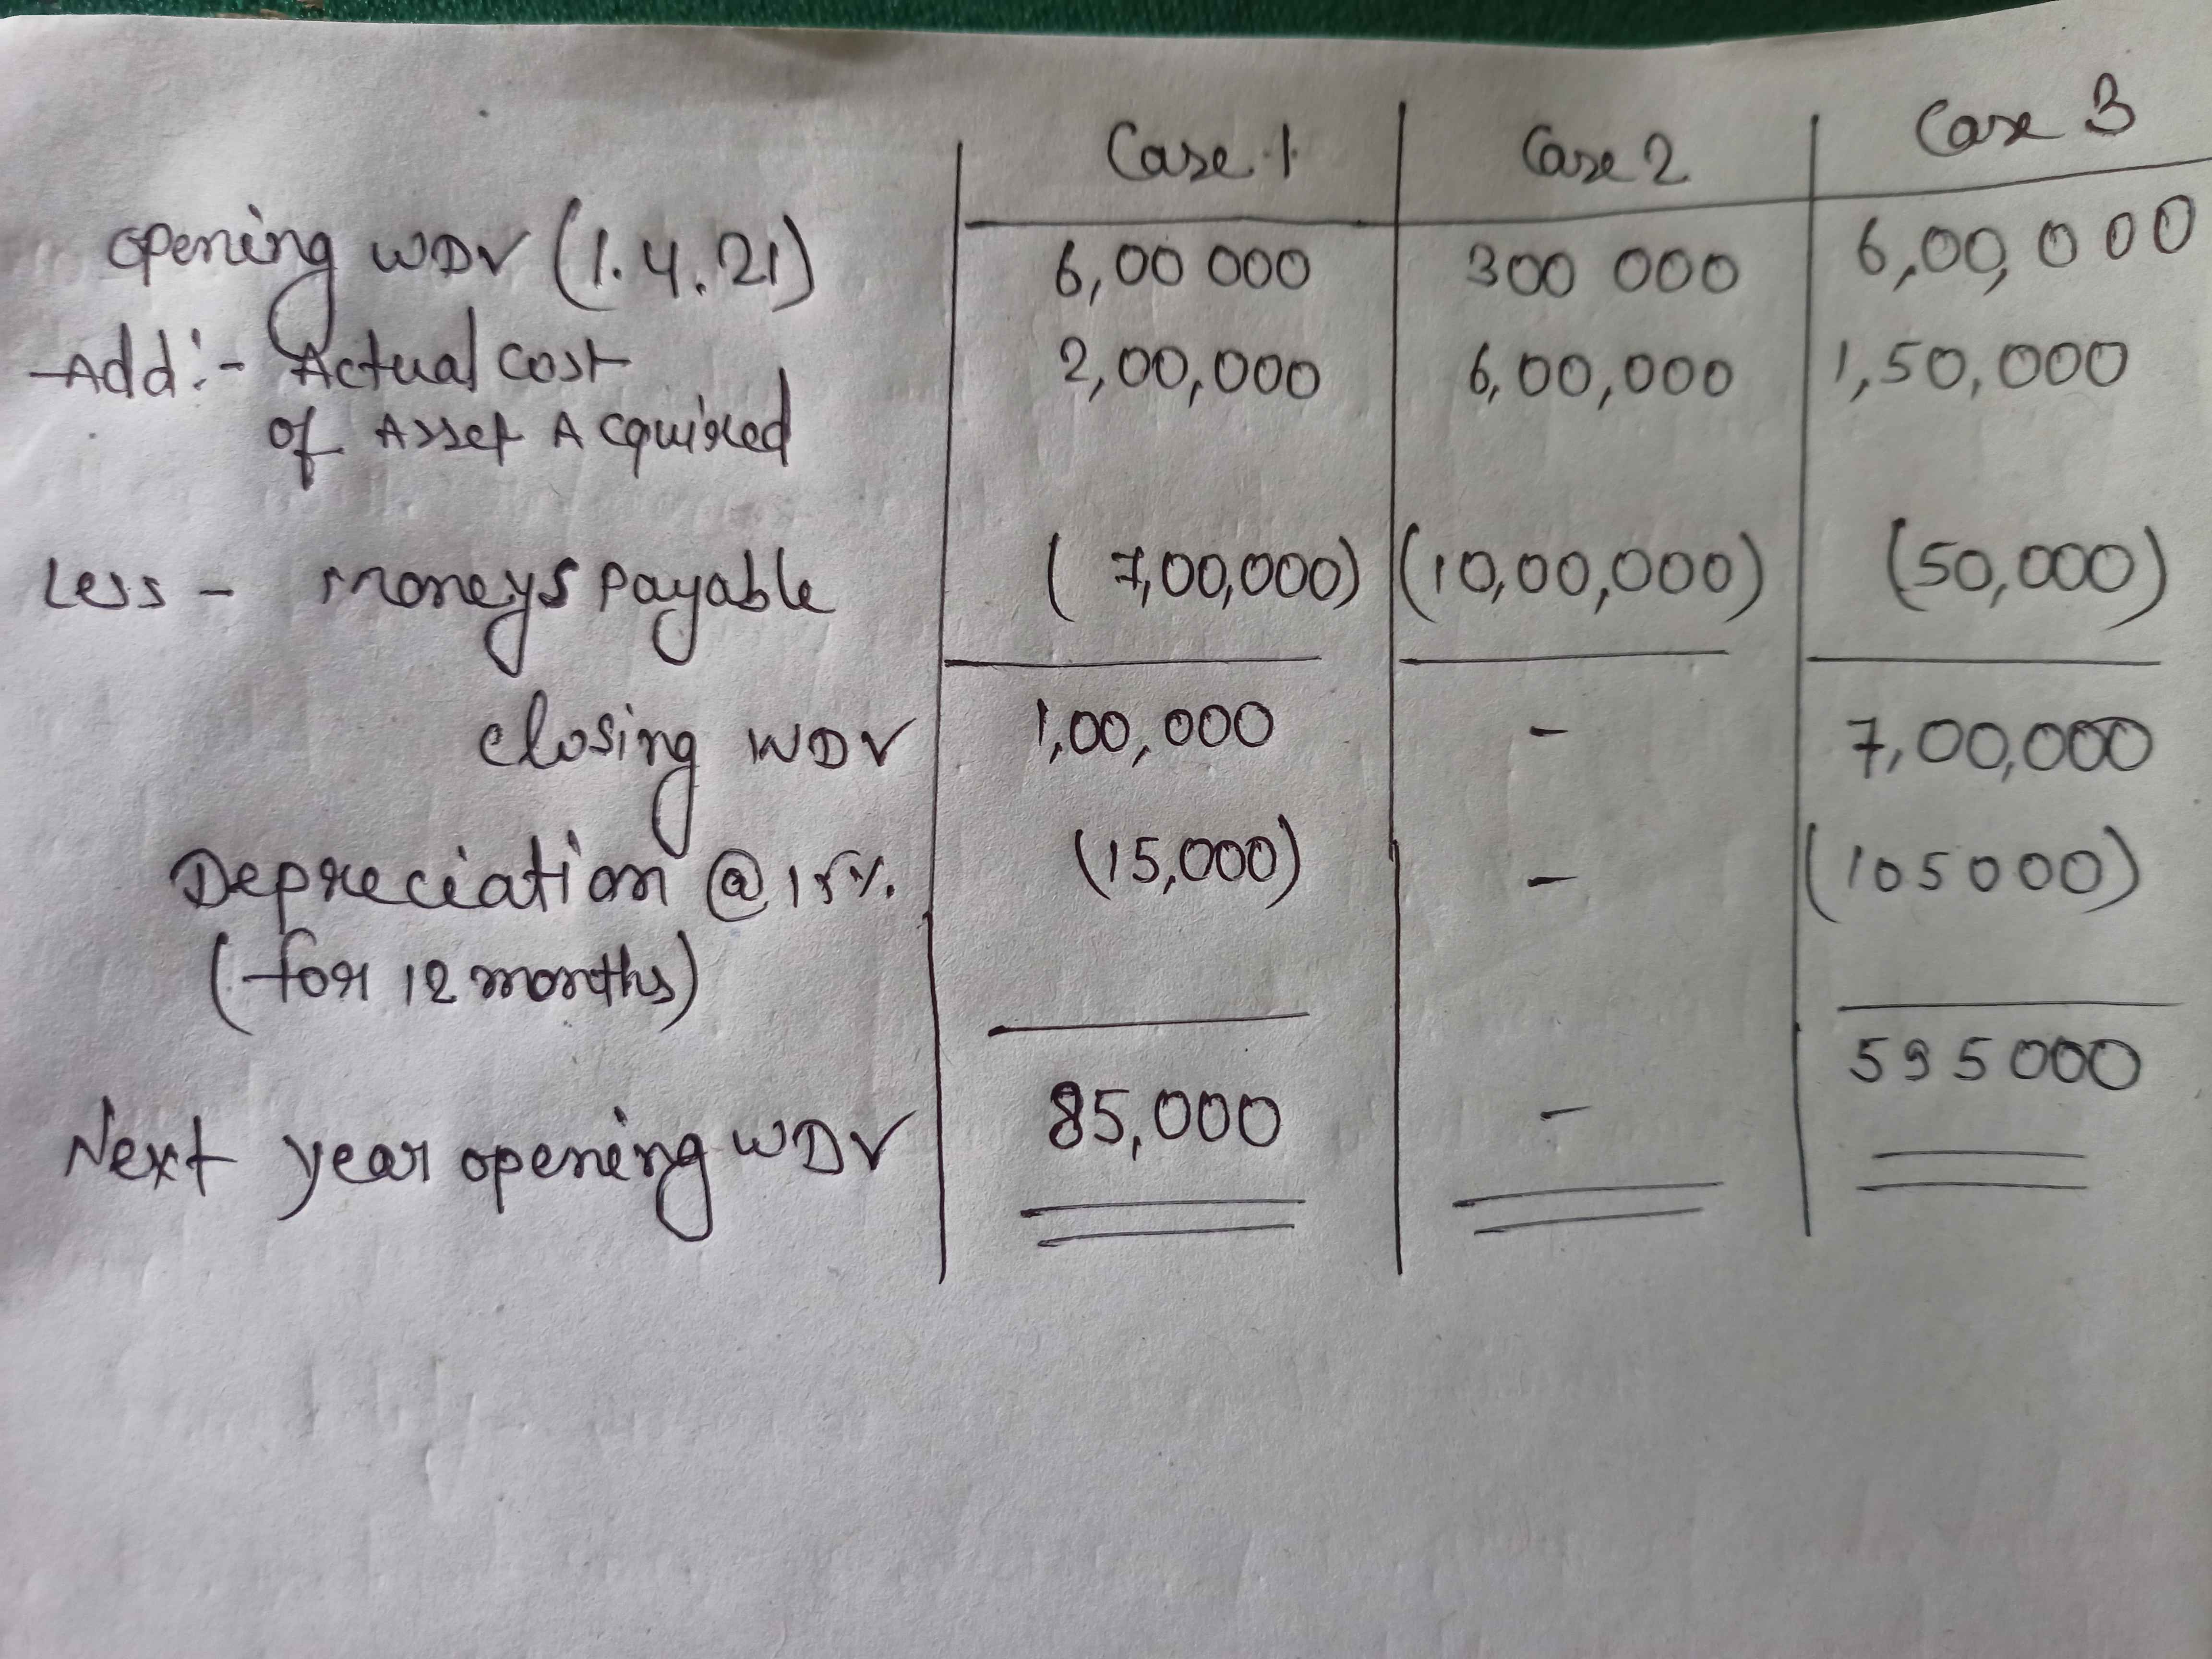 Case 1 Case 2 Case 3
Opening WDV (1.4.21) 6,00 000 300 000 6,00,000
Add:- Actual cost 2,00,000 6,00,000 1,50,000
of Asset Acquired
Less - Moneys payable (7,00,000) (10,00,000) (50,000)
Closing WDV 1,00,000 - 7,00,000
Depreciation @ 15% (15,000) - (105000)
(for 12 months)
Next year opening WDV 85,000 - 595000